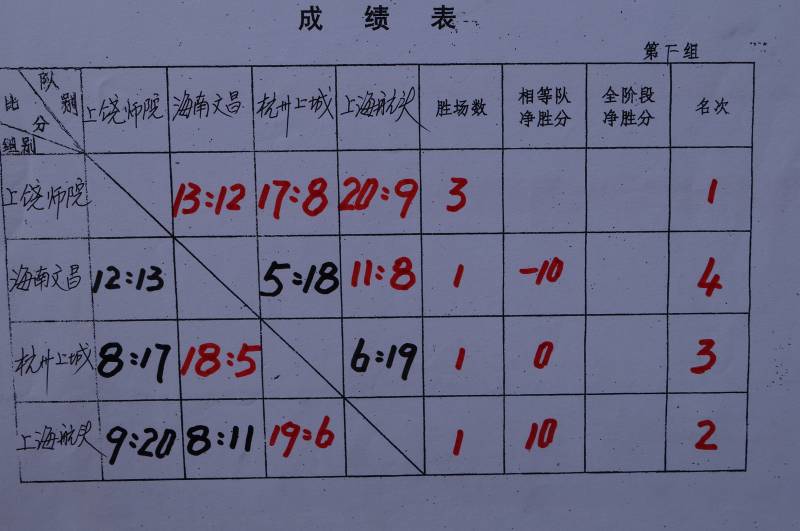 成 绩 表
第F组
队别 比分 组别 上饶师院 海南文昌 杭州上城 上海航头 胜场数 相等队净胜分 全阶段净胜分 名次
上饶师院 13:12 17:8 20:9 3 1
海南文昌 12:13 5:18 11:8 1 -10 4
杭州上城 8:17 18:5 6:19 1 0 3
上海航头 9:20 8:11 19:6 1 10 2